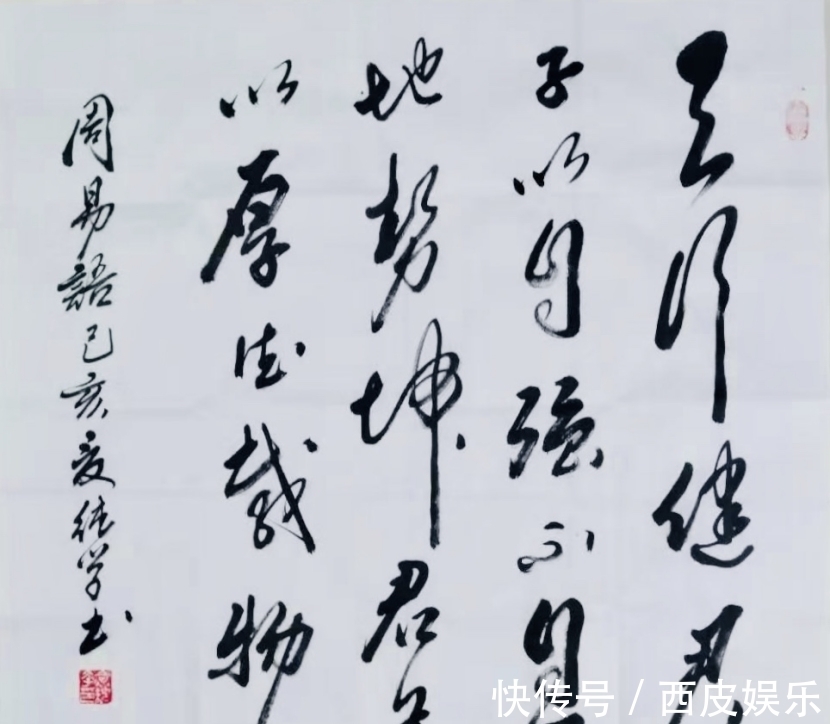 天行健君
子以自强不息
地势坤君子
以厚德載物
周易語己亥夏学书
快传号 / 西皮娱乐